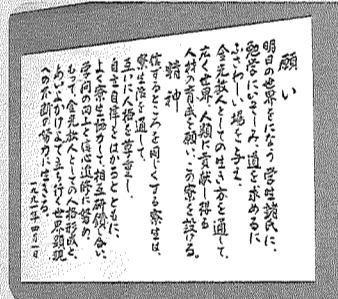 願い
明日の世界をになう学生諸氏に、
勉学にいそしみ、道を求めるに
ふさわしい場を与え、
金光教人としての生き方を通して、
広く世界・人類に貢献し得る
人材の育成を願い、この寮を設ける。
精神
信ずるところを同じくする寮生は、
寮生活を通して、
互いに人格を尊重し、
自主自律をはかるとともに、
よく寮生協力して、相互研鑽し合い、
学問の向上と信心追修に努め、
もって、金光教人としての人格形成と、
あいよかけよで立ち行く世界顕現
への不断の努力に生きる。
一九九一年四月一日